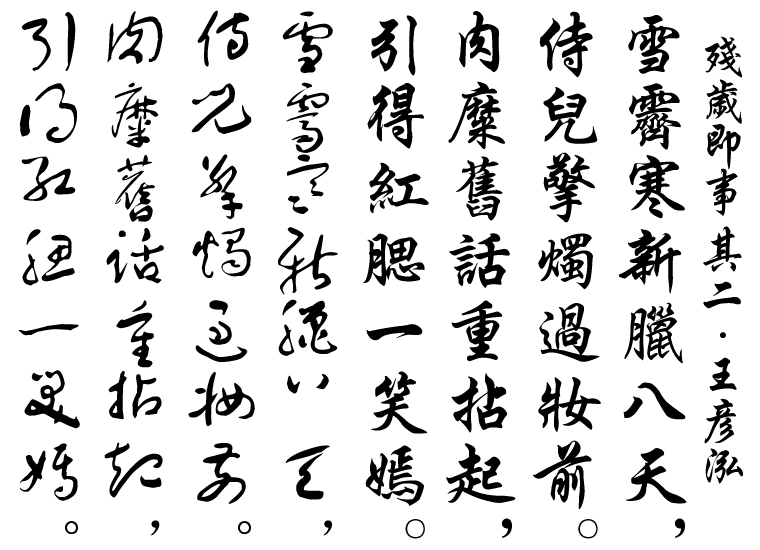 殘歲即事 其二．王彥泓
雪霽寒新臘八天，
侍兒擎燭過妝前。
肉糜舊話重拈起，
引得紅腮一笑嫣。
雪霽寒新臘八天，
侍兒擎燭過妝前。
肉糜舊話重拈起，
引得紅腮一笑嫣。